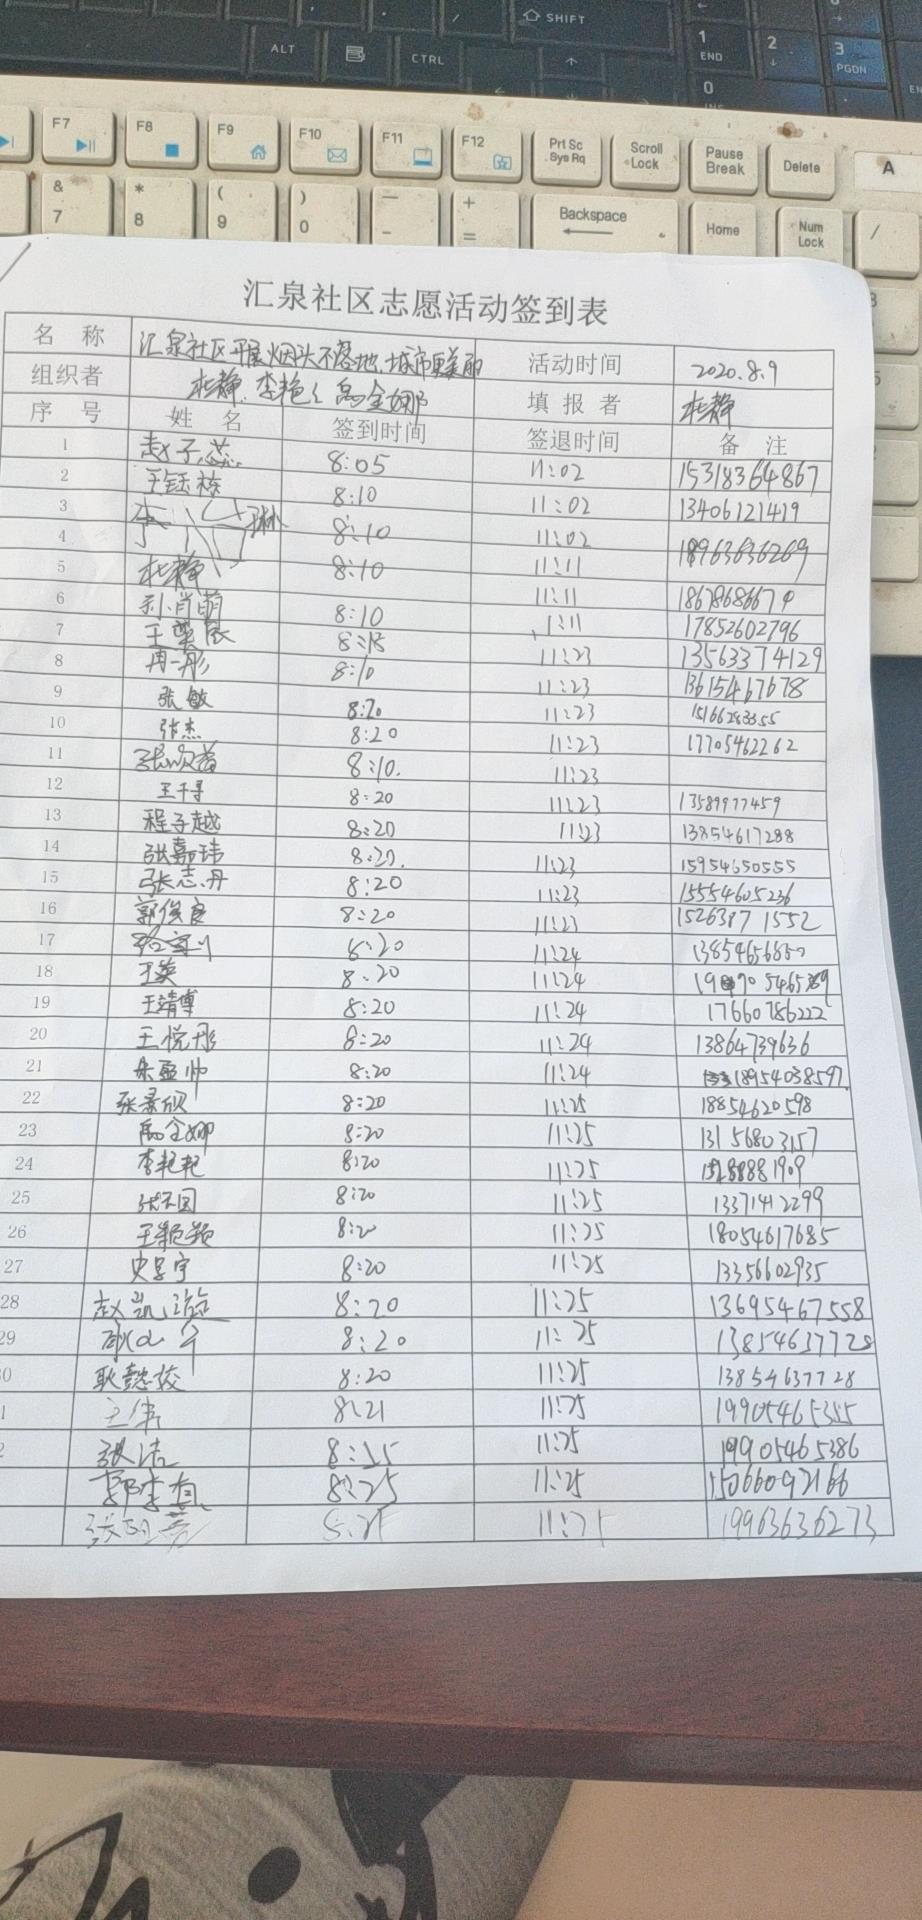 SHIFT
ALT CTRL
1 END 2 3 PGDN
0
F7 F8 F9 F10 F11 F12 Prt Sc Sys Rq Scroll Lock Pause Break Delete A
& 7 * 8 ( 9 ) 0 — - + = Backspace Home Num Lock /
汇泉社区志愿活动签到表
名 称 汇泉社区开展烟头不落地.城市更美丽 活动时间 2020.8.9
组织者 杜静.李艳艳 高金娜 填报者 杜静
序 号 姓 名 签到时间 签退时间 备 注
1 赵子蕊 8:05 11:02 15318364867
2 王钰栋 8:10 11:02 13406121419
3 李 琳 8:10 11:02 18963636269
4
5 杜静 8:10 11:11 18678686674
6 孙肖萌 8:10 1:11 17852602796
7 王奕辰 8:15 11:23 13563374129
8 冉一彤 8:10 11:23 13615467678
9 张敏 8:20 11:23 15166283355
10 张杰 8:20 11:23 17705462262
11 8:10. 11:23
12 王千寻 8:20 11:23 13589977459
13 程子越 8:20 11:23 13854617288
14 张嘉玮 8:20. 11:23 15954650555
15 张志丹 8:20 11:23 15554605236
16 郭俊良 8:20 11:23 15263871552
17 8:20 11:24
18 王英 8:20 11:24
19 王靖博 8:20 11:24 17660786222
20 王悦彤 8:20 11:24 13864739636
21 朱孟帅 8:20 11:24 18954038597
22 张景欣 8:20 11:25 18854620598
23 高金娜 8:20 11:25 13156803157
24 李艳艳 8:20 11:25
25 8:20 11:25 13371412299
26 王颖颖 8:20 11:25 18054617685
27 史学宇 8:20 11:25 13356602935
28 赵凯 8:20 11:25 13695467558
29 8:20 11:25 13854637728
0 耿懿姣 8:20 11:25 13854637728
1 王伟 8:21 11:25 19905465355
2 张洁 8:25 11:25 19905465386
郭李真 8:25 11:25 15066092166
8:25 11:25 19963636273